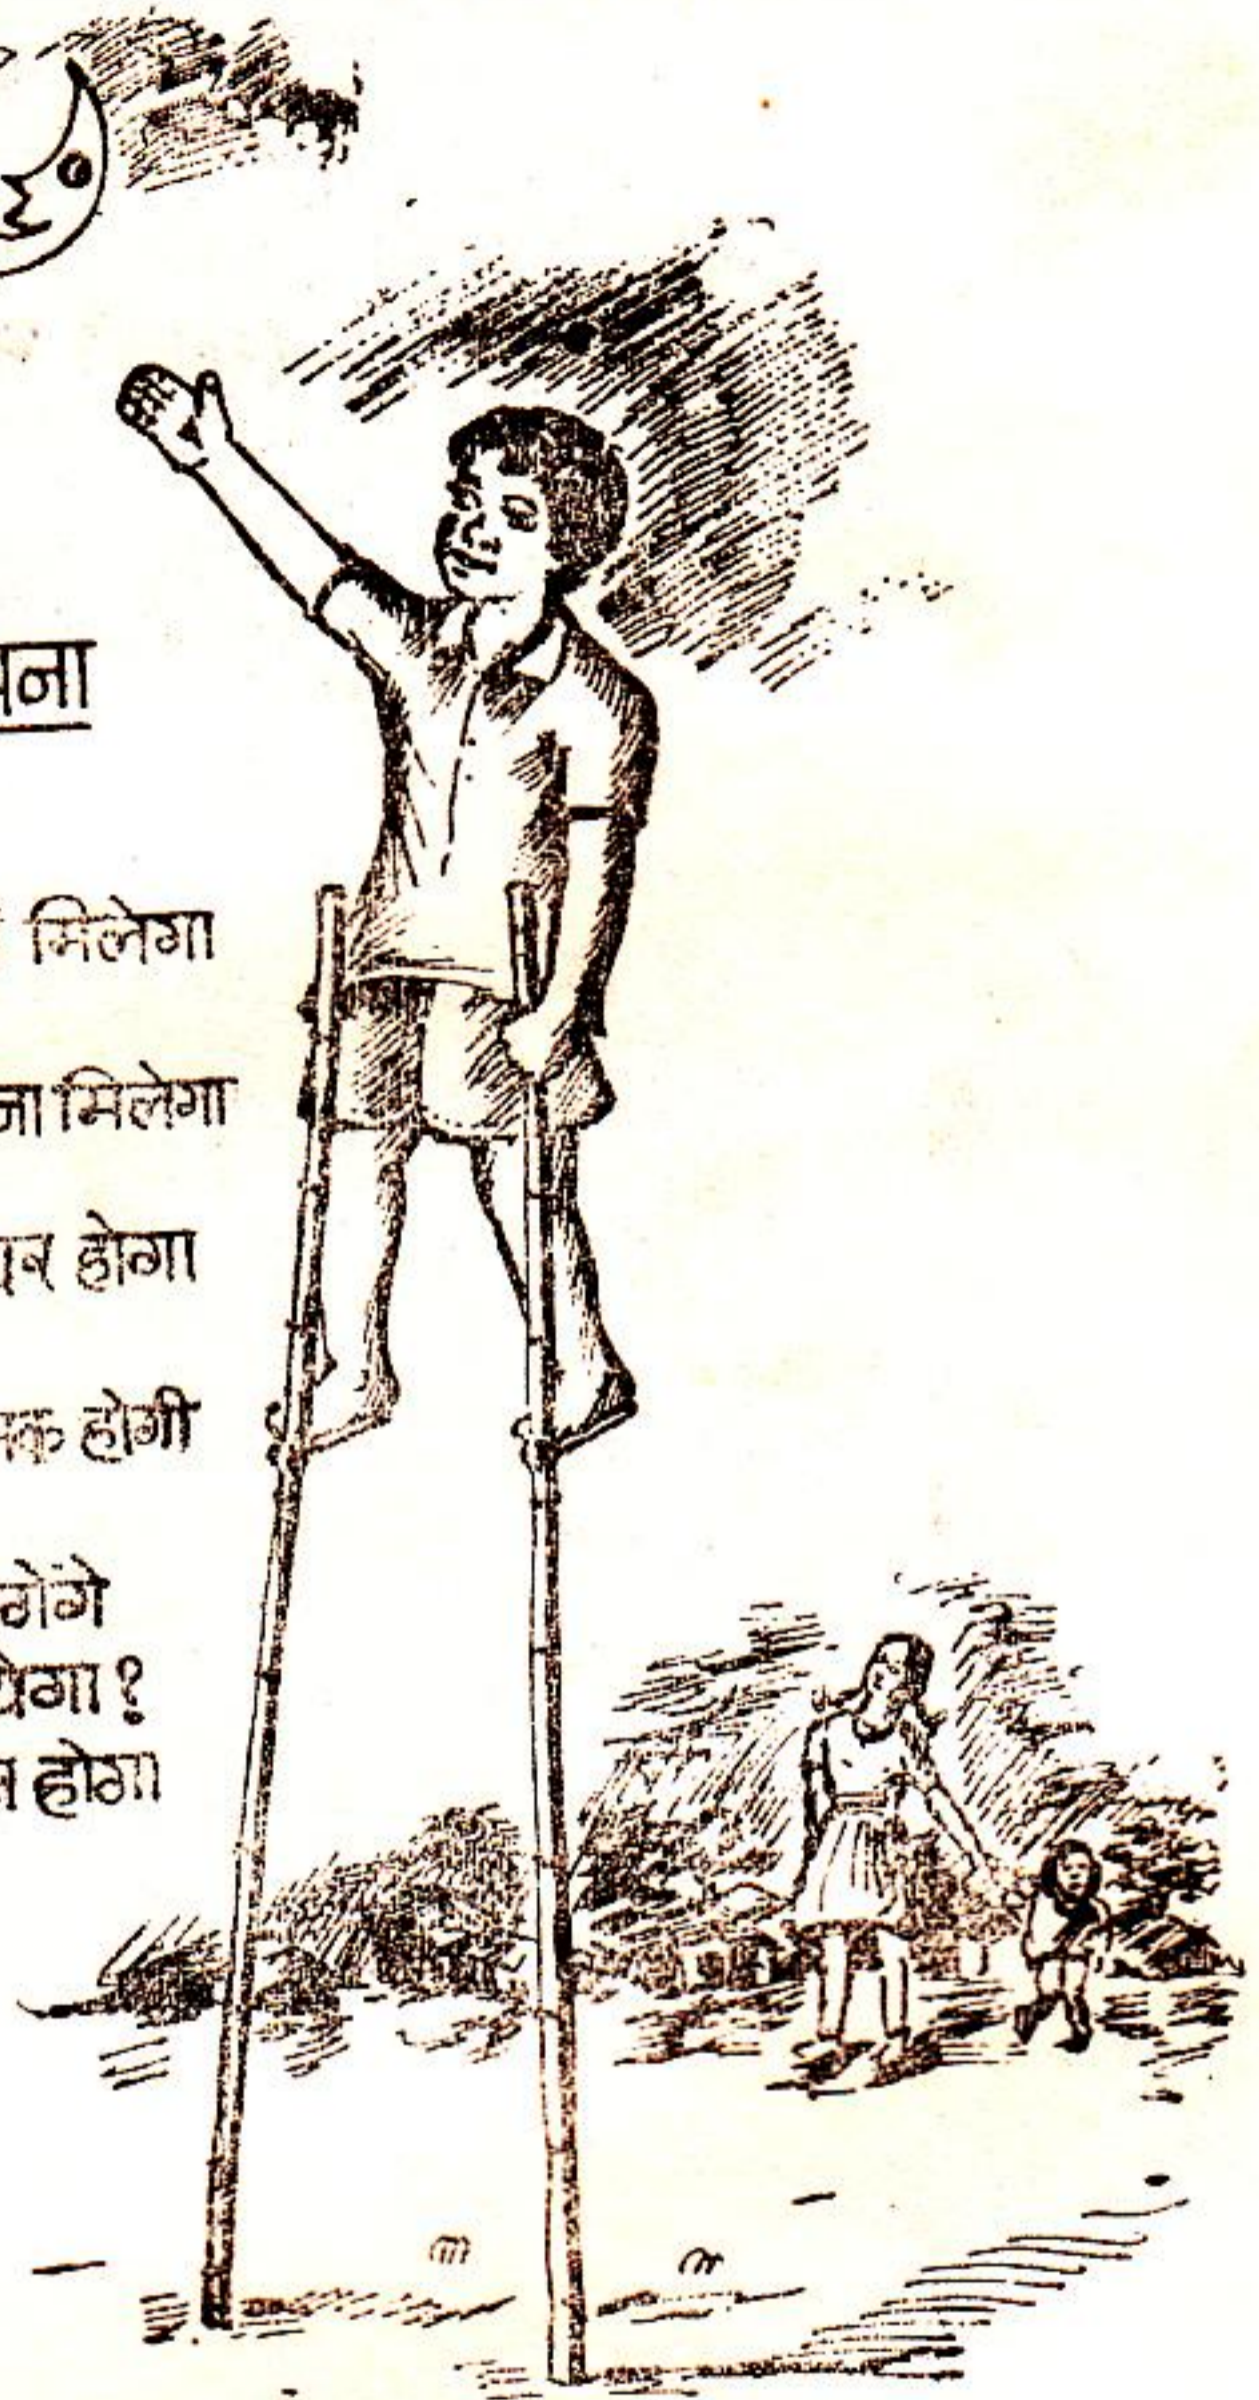 पना
मिलेगा
जा मिलेगा
होगा
होगी
गेंगे
येगा?
होगा